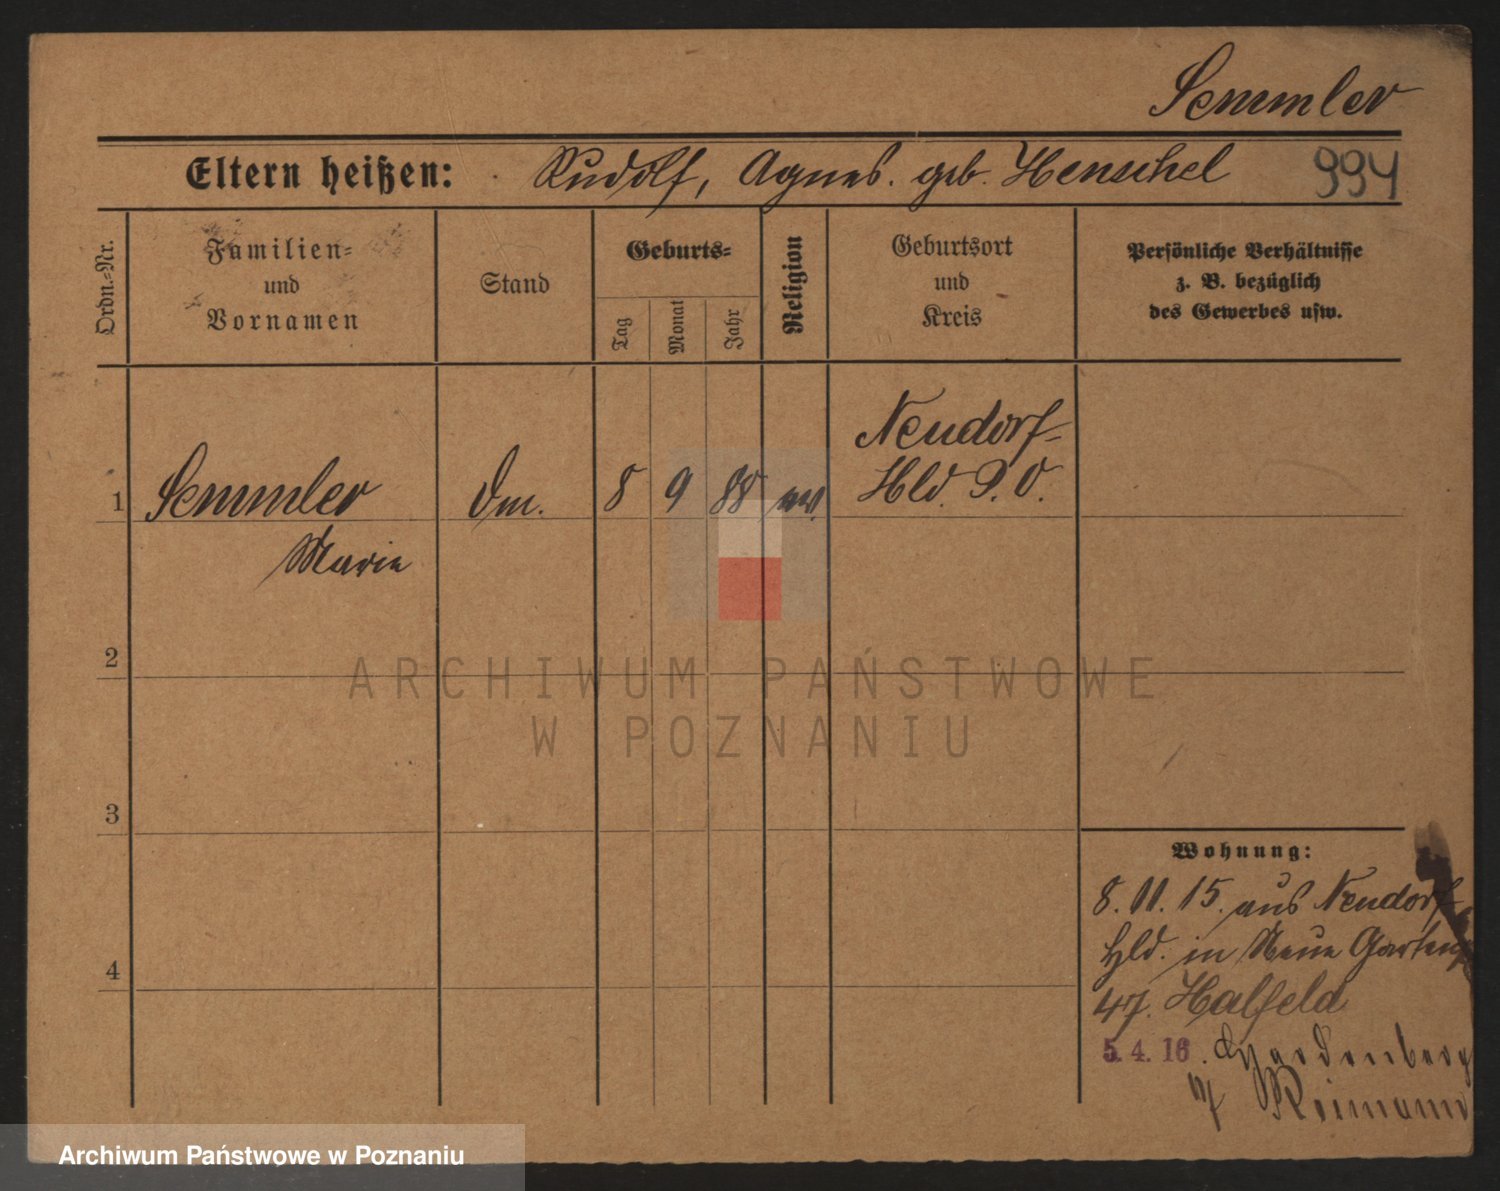 Semmler
Eltern heißen: Rudolf, Agnes. geb. Henschel 994
Ordn.=Nr.
Familien=
und
Vornamen
Stand
Geburts=
Tag
Monat
Jahr
Religion
Geburtsort
und
Kreis
Persönliche Verhältnisse
z. B. bezüglich
des Gewerbes usw.
Neudorf-
Hld. P. O.
1 Semmler 8 9 88
Marie
2
3
4
Wohnung:
8. 11. 15. aus Neudorf
Hld. in Neue Gartens
47. Halfeld
5. 4. 16. Hardenberg
7 Reimann
ARCHIWUM PAŃSTWOWE
W POZNANIU
Archiwum Państwowe w Poznaniu